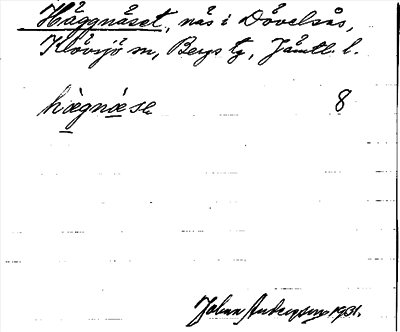 Häggnäset, näs i Dövelsås,
Klövsjö sn, Bergs tg, Jämtl. l.
hägnä se 8
Johan Anderzson 1931.